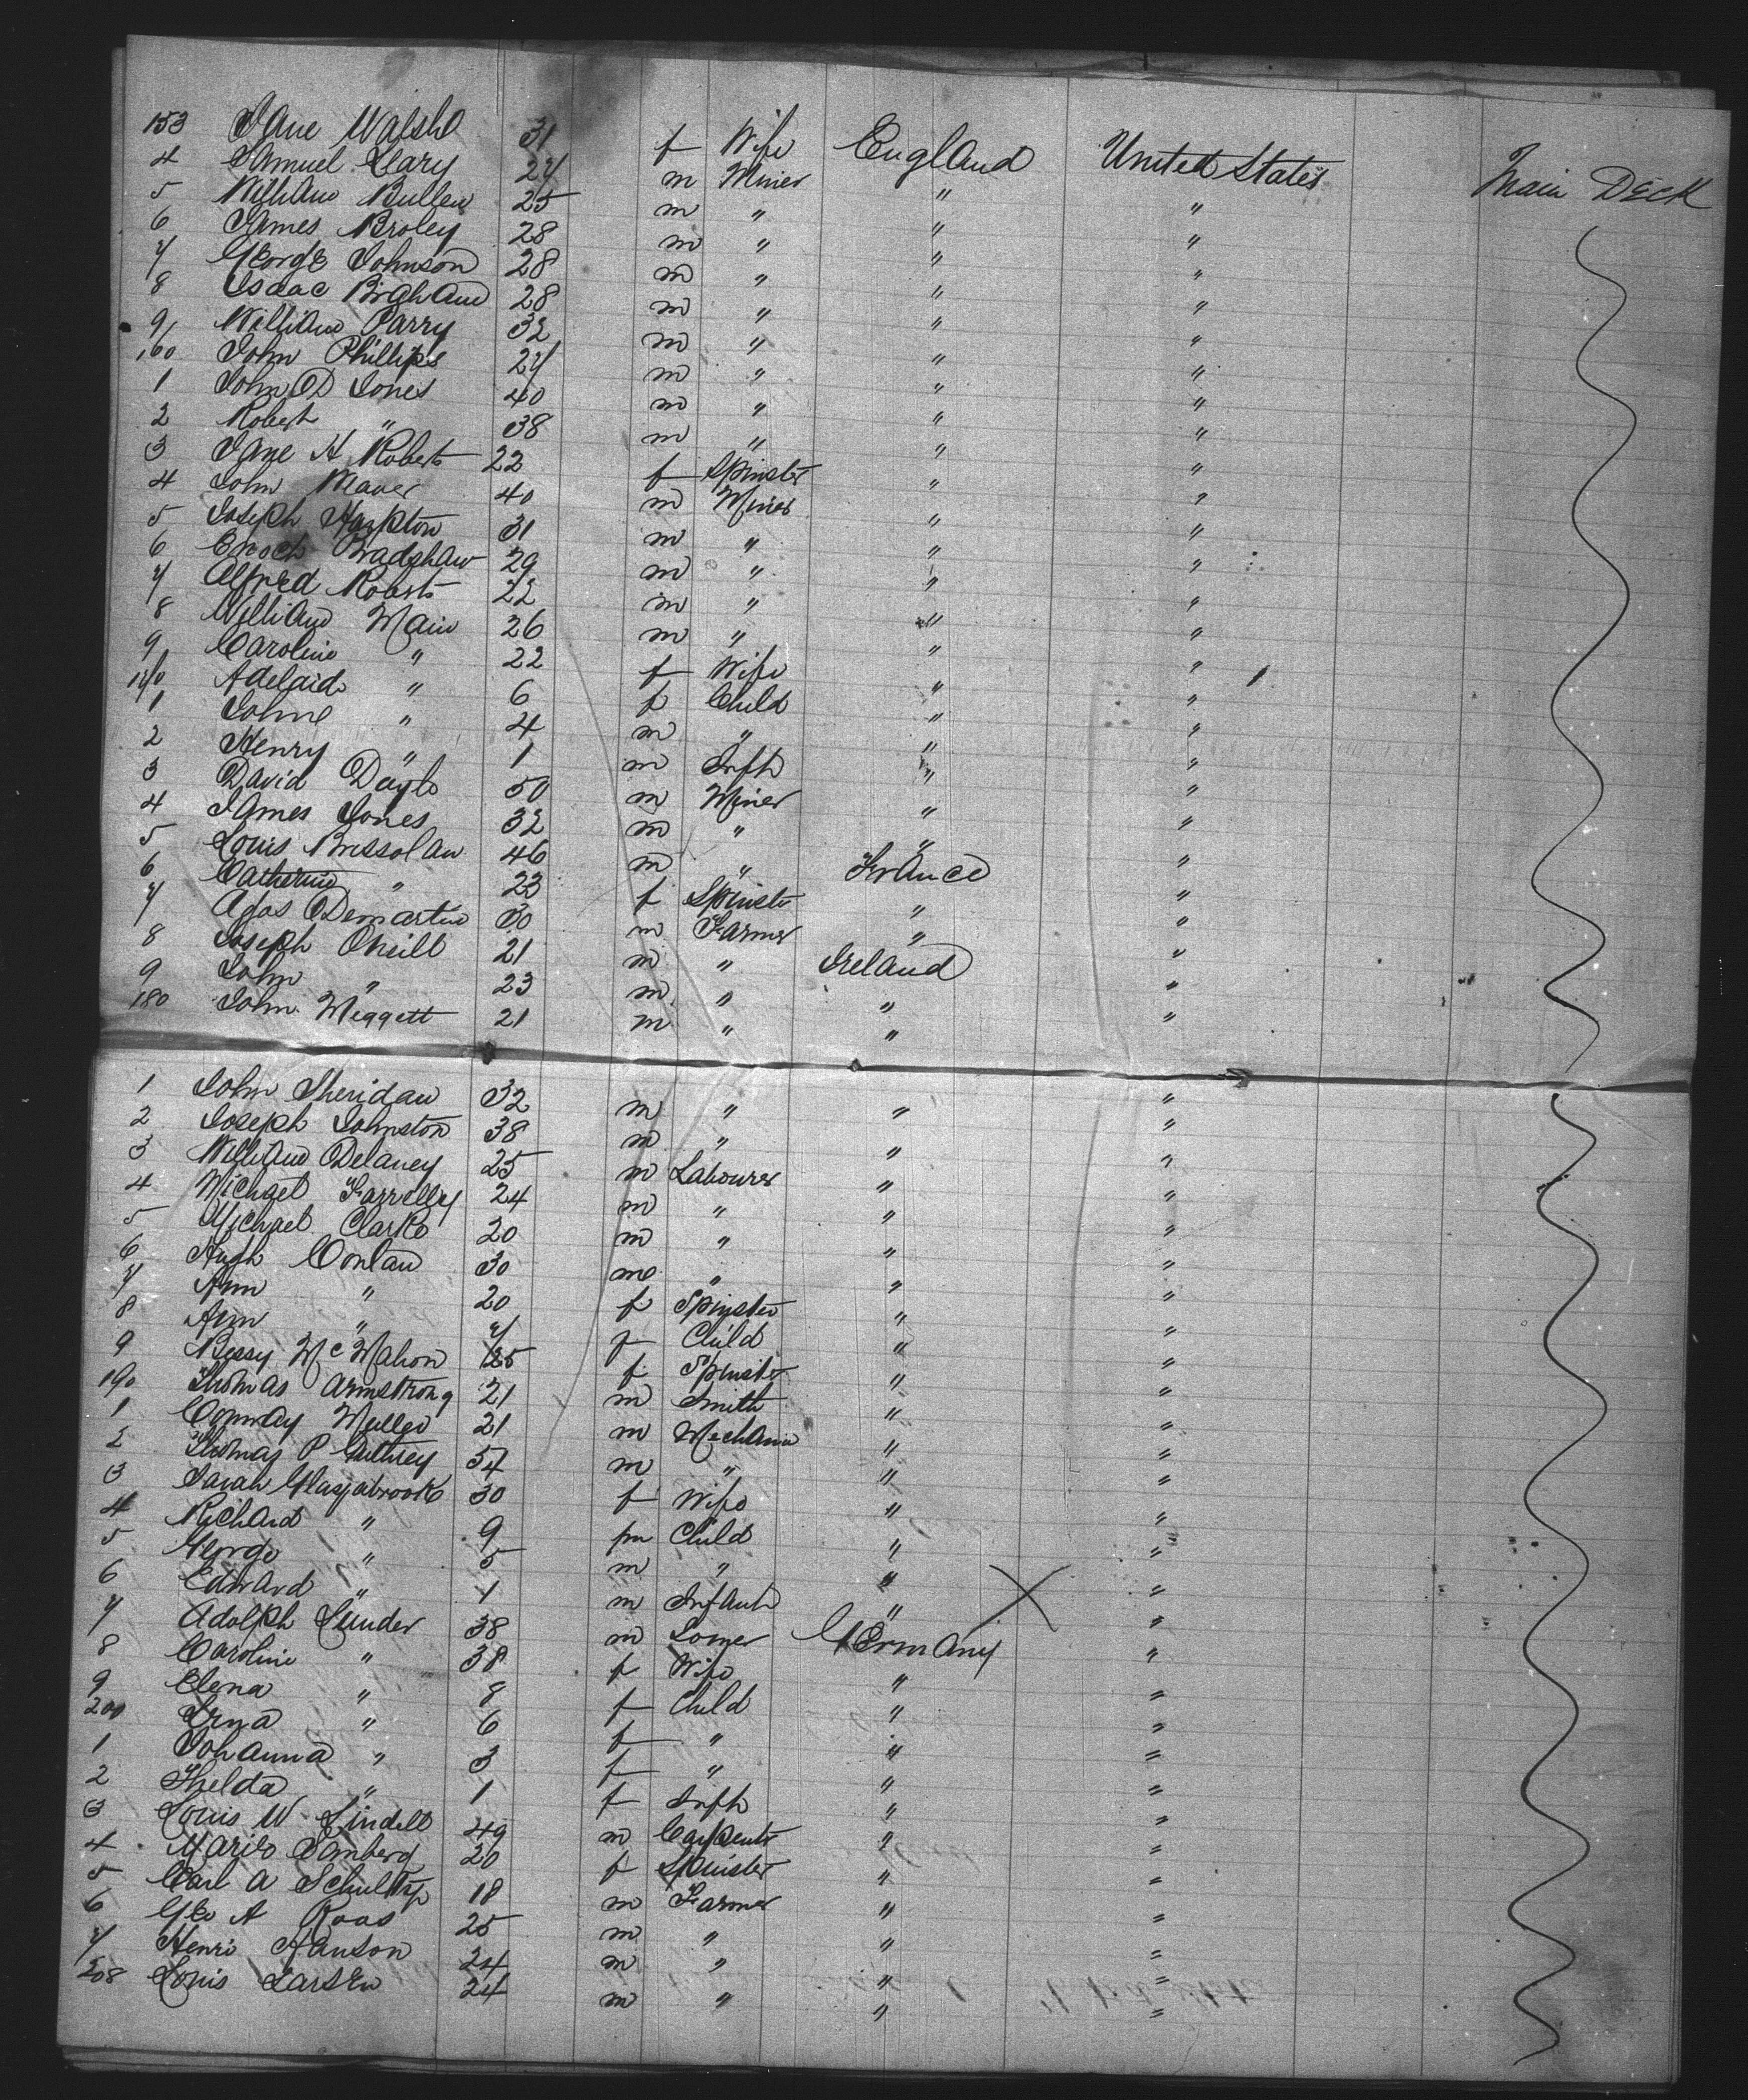 153 Jane Walsh 31 f Wife England United States Main Deck
4 Samuel Leary 27 m Miner " "
5 William Bullen 25 m " " "
6 James Broley 28 m " " "
7 George Johnson 28 m " " "
8 Isaac Brigham 28 m " " "
9 William Parry 32 m " " "
160 John Phillips 27 m " " "
1 John D Jones 40 m " " "
2 Robert " 38 m " " "
3 Jane H Roberts 22 f Spinster " "
4 John Maver 40 m Miner " "
5 Joseph Hampton 31 m " " "
6 Enoch Bradshaw 29 m " " "
7 Alfred Roberts 22 m " " "
8 William Main 26 m " " "
9 Caroline " 22 f Wife " "
170 Adelaide " 6 f Child " "
1 John " 4 m " " "
2 Henry " 1 m Inft " "
3 David Doyle 50 m Miner " "
4 James Jones 32 m " " "
5 Louis Bressolau 46 m " France "
6 Catherine " 23 f Spinster " "
7 Agos Demartin 30 m Farmer " "
8 Joseph Oneill 21 m " Ireland "
9 John " 23 m " " "
180 John Meggett 21 m " " "
1 John Sheridan 32 m " " "
2 Joseph Johnston 38 m " " "
3 William Delaney 25 m Labourer " "
4 Michael Farrelly 24 m " " "
5 Michael Clarke 20 m " " "
6 Hugh Conlan 30 m " " "
7 Ann " 20 f Spinster " "
8 Ann " 7 f Child " "
9 Bessy McMahon 25 f Spinster " "
190 Thomas Armstrong 21 m Smith " "
1 Conway 21 m Mechanic " "
2 Thomas P Guthrey 54 m " " "
3 Sarah Glassbrook 30 f Wife " "
4 Richard " 9 m Child " "
5 George " 5 m " " "
6 Edward " 1 m Infant " "
7 Adolph Lunder 38 m Germany "
8 Caroline " 38 f Wife " "
9 Elena " 8 f Child " "
200 Erna " 6 f " " "
1 Johanna " 3 f " " "
2 Thelda " 1 f Inft " "
3 Louis W Lindell 49 m Carpenter " "
4 Marie Samberg 20 f Spinster " "
5 Carl A 18 m Farmer " "
6 Geo A Roos 25 m " " "
7 Henri Hanson 24 m " " "
208 Louis Larsen 24 m " " "